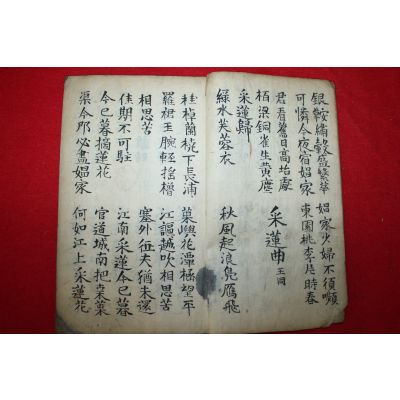 銀鞍繡轂盛繁華 娼家少婦不須嚬
可憐今夜宿娼家 東園桃李片時春
君看舊日高坮處
栢梁銅雀生黃塵 采蓮曲 王同
采蓮歸
綠水芙蓉衣 秋風起浪鳧雁飛
桂棹蘭橈下長浦 葉嶼花潭極望平
羅裙玉腕輕搖櫓 江謳越吹相思苦
相思苦 塞外征夫猶未還
佳期不可駐 江南采蓮今已暮
今已暮摘蓮花 官道城南把桑葉
渠今那必盡娼家 何如江上采蓮花